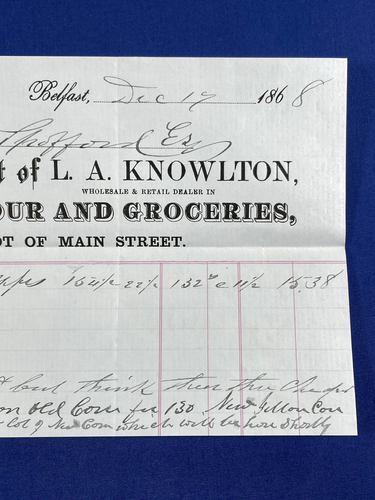 Belfast, Dec 17 1868
Spofford Esq
t of L. A. KNOWLTON,
WHOLESALE & RETAIL DEALER IN
OUR AND GROCERIES,
OT OF MAIN STREET.
154½ 22½ 132 @ 11½ 15.38
but think
old Corn for 130 New Yellow Corn
lot of New Corn which will be here shortly